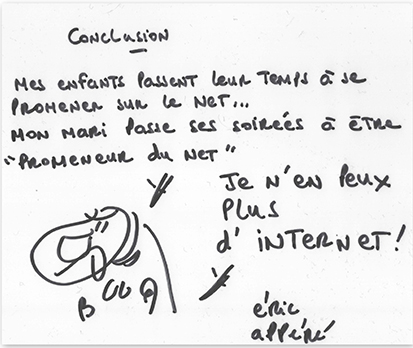 Conclusion
Mes enfants passent leur temps à se
promener sur le net...
Mon mari passe ses soirées à être
"promeneur du net"
Je n'en peux
plus
d'internet!
éric
appéré